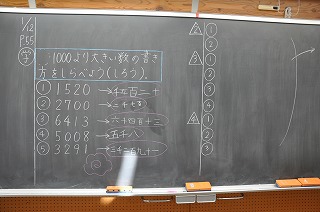 1/12
P.55
1000より大きい数の書き
方をしらべよう(しろう)。
① 1520 →千五百二十
② 2700 →二千七百
③ 6413 →六千四百十三
④ 5008 →五千八
⑤ 3291 →三千二百九十一
2
①
②
3
①
②
③
④
4
①
②
③